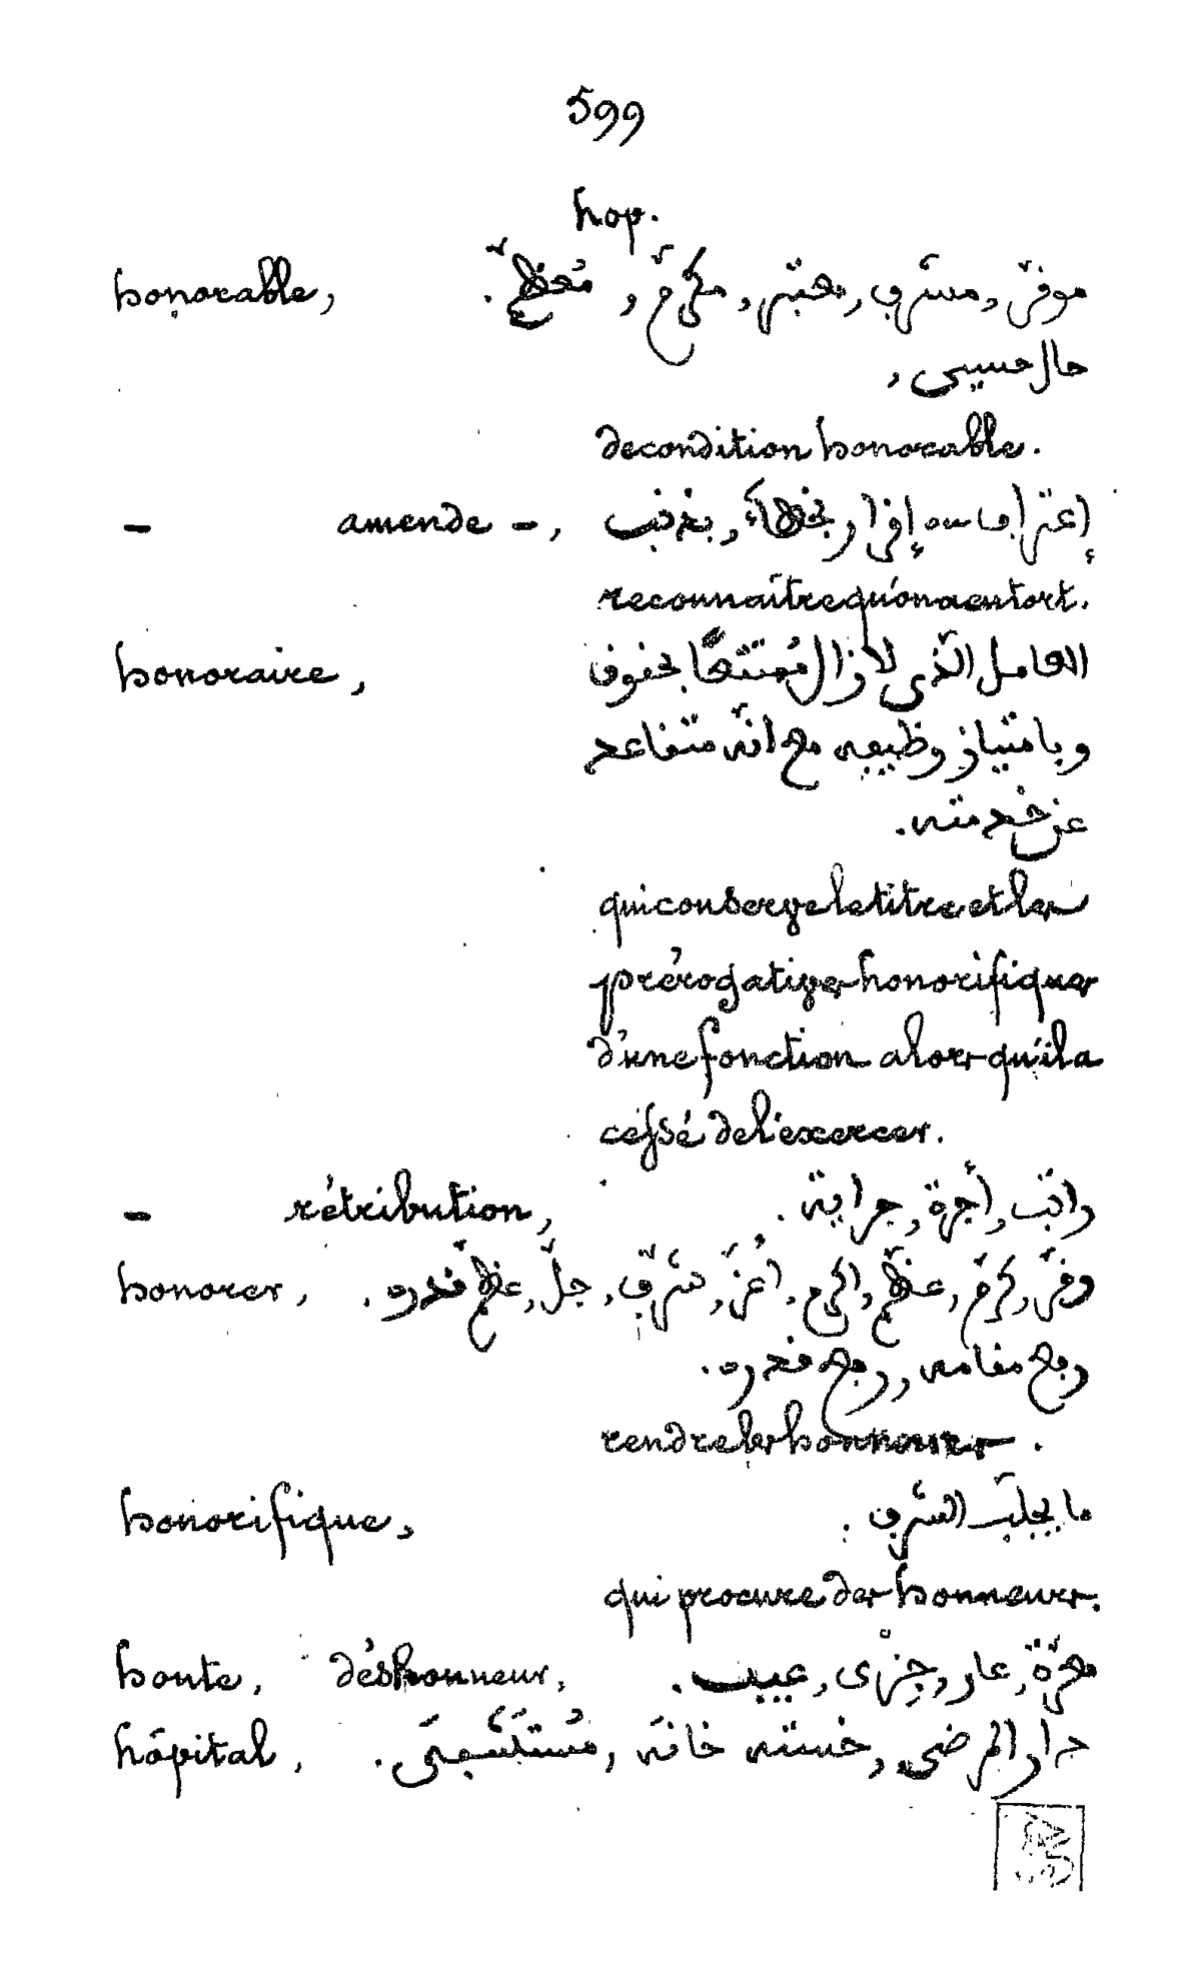 599
hop.
honorable, موقّر, مشرّف, معتبر, مكرّم, مُعظّم.
حال حسيبى,
de condition honorable.
— amende —, إعترافا إقرار بخطاء, بذنب
reconnaître qu'on a eu tort.
honoraire, العامل الّذى لا زال مُمتتعًا بحقوق
وبامتياز وظيفه مع انّه متقاعد
عن خدمته.
qui conserve le titre et les
prérogatives honorifiques
d'une fonction alors qu'il a
cessé de l'exercer.
— rétribution, راتب, أجرة, جراية.
honorer, وقّر, كرّم, عظّم, اكرم, أعزّ, شرّف, جلّ, عظّم قدره.
رفع مقامه, رفع قدره.
rendre les honneurs.
honorifique, ما يجلب الشرف.
qui procure des honneurs.
honte, déshonneur, معرّة, عار, خزى, عيب.
hôpital, دار المرضى, خسته خانه, مُستَشفَى.